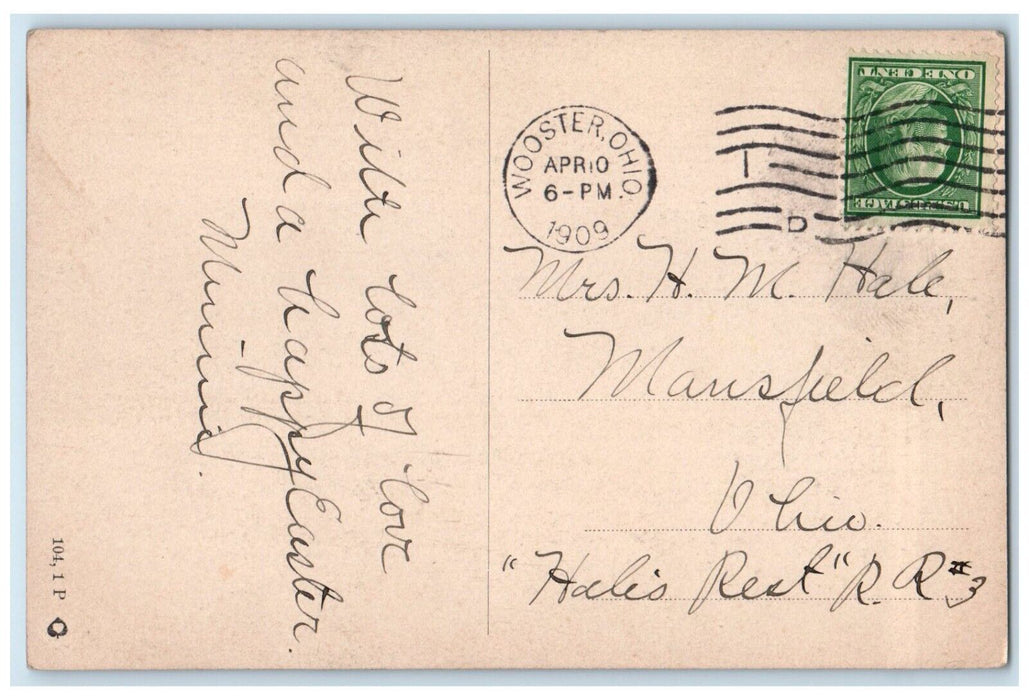 With lots of love
and a happy Easter.
Minnie.
WOOSTER, OHIO.
APR 10
6-PM
1909
1
D
ONE CENT
U.S. POSTAGE
Mrs. H. M. Hale,
Mansfield,
Ohio.
"Hale's Rest" R. R #3
104, 1 P